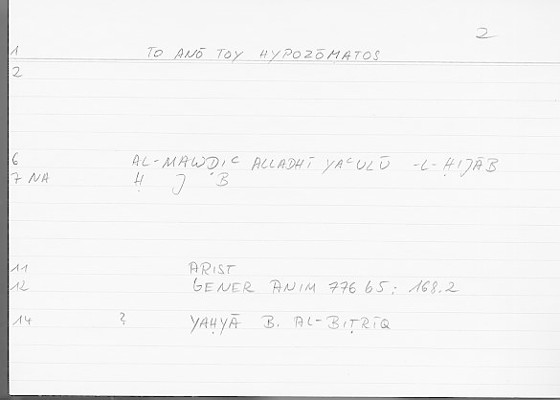 2
1 TO ANŌ TOY HYPOZŌMATOS
2
6 AL-MAWḌIʿ ALLADHĪ YAʿLŪ -L-ḤIJĀB
7 NA Ḥ J B
11 ARIST
12 GENER ANIM 776 b5: 168.2
14 ? YAḤYĀ B. AL-BIṬRĪQ